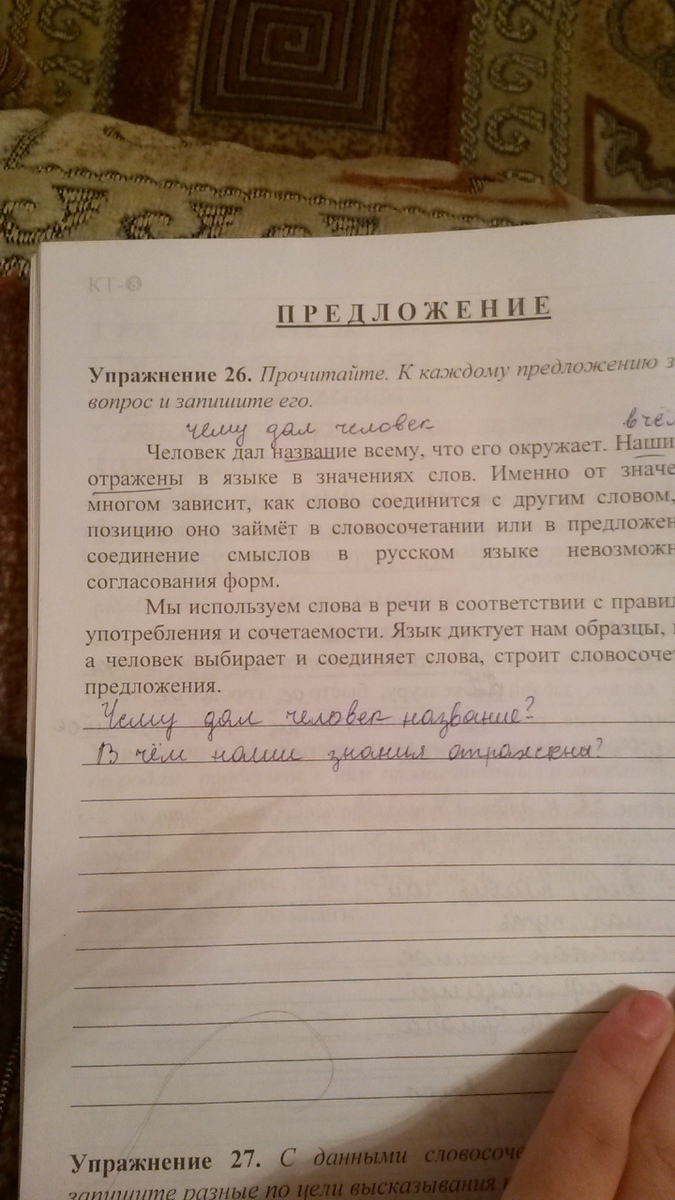 КТ-8
ПРЕДЛОЖЕНИЕ
Упражнение 26. Прочитайте. К каждому предложению з
вопрос и запишите его.
чему дал человек в чём
Человек дал название всему, что его окружает. Наши
отражены в языке в значениях слов. Именно от значе
многом зависит, как слово соединится с другим словом,
позицию оно займёт в словосочетании или в предложен
соединение смыслов в русском языке невозможн
согласования форм.
Мы используем слова в речи в соответствии с правил
употребления и сочетаемости. Язык диктует нам образцы,
а человек выбирает и соединяет слова, строит словосоче
предложения.
Чему дал человек название?
В чём наши знания отражены?
Упражнение 27. С данными словосоче
запишите разные по цели высказывания